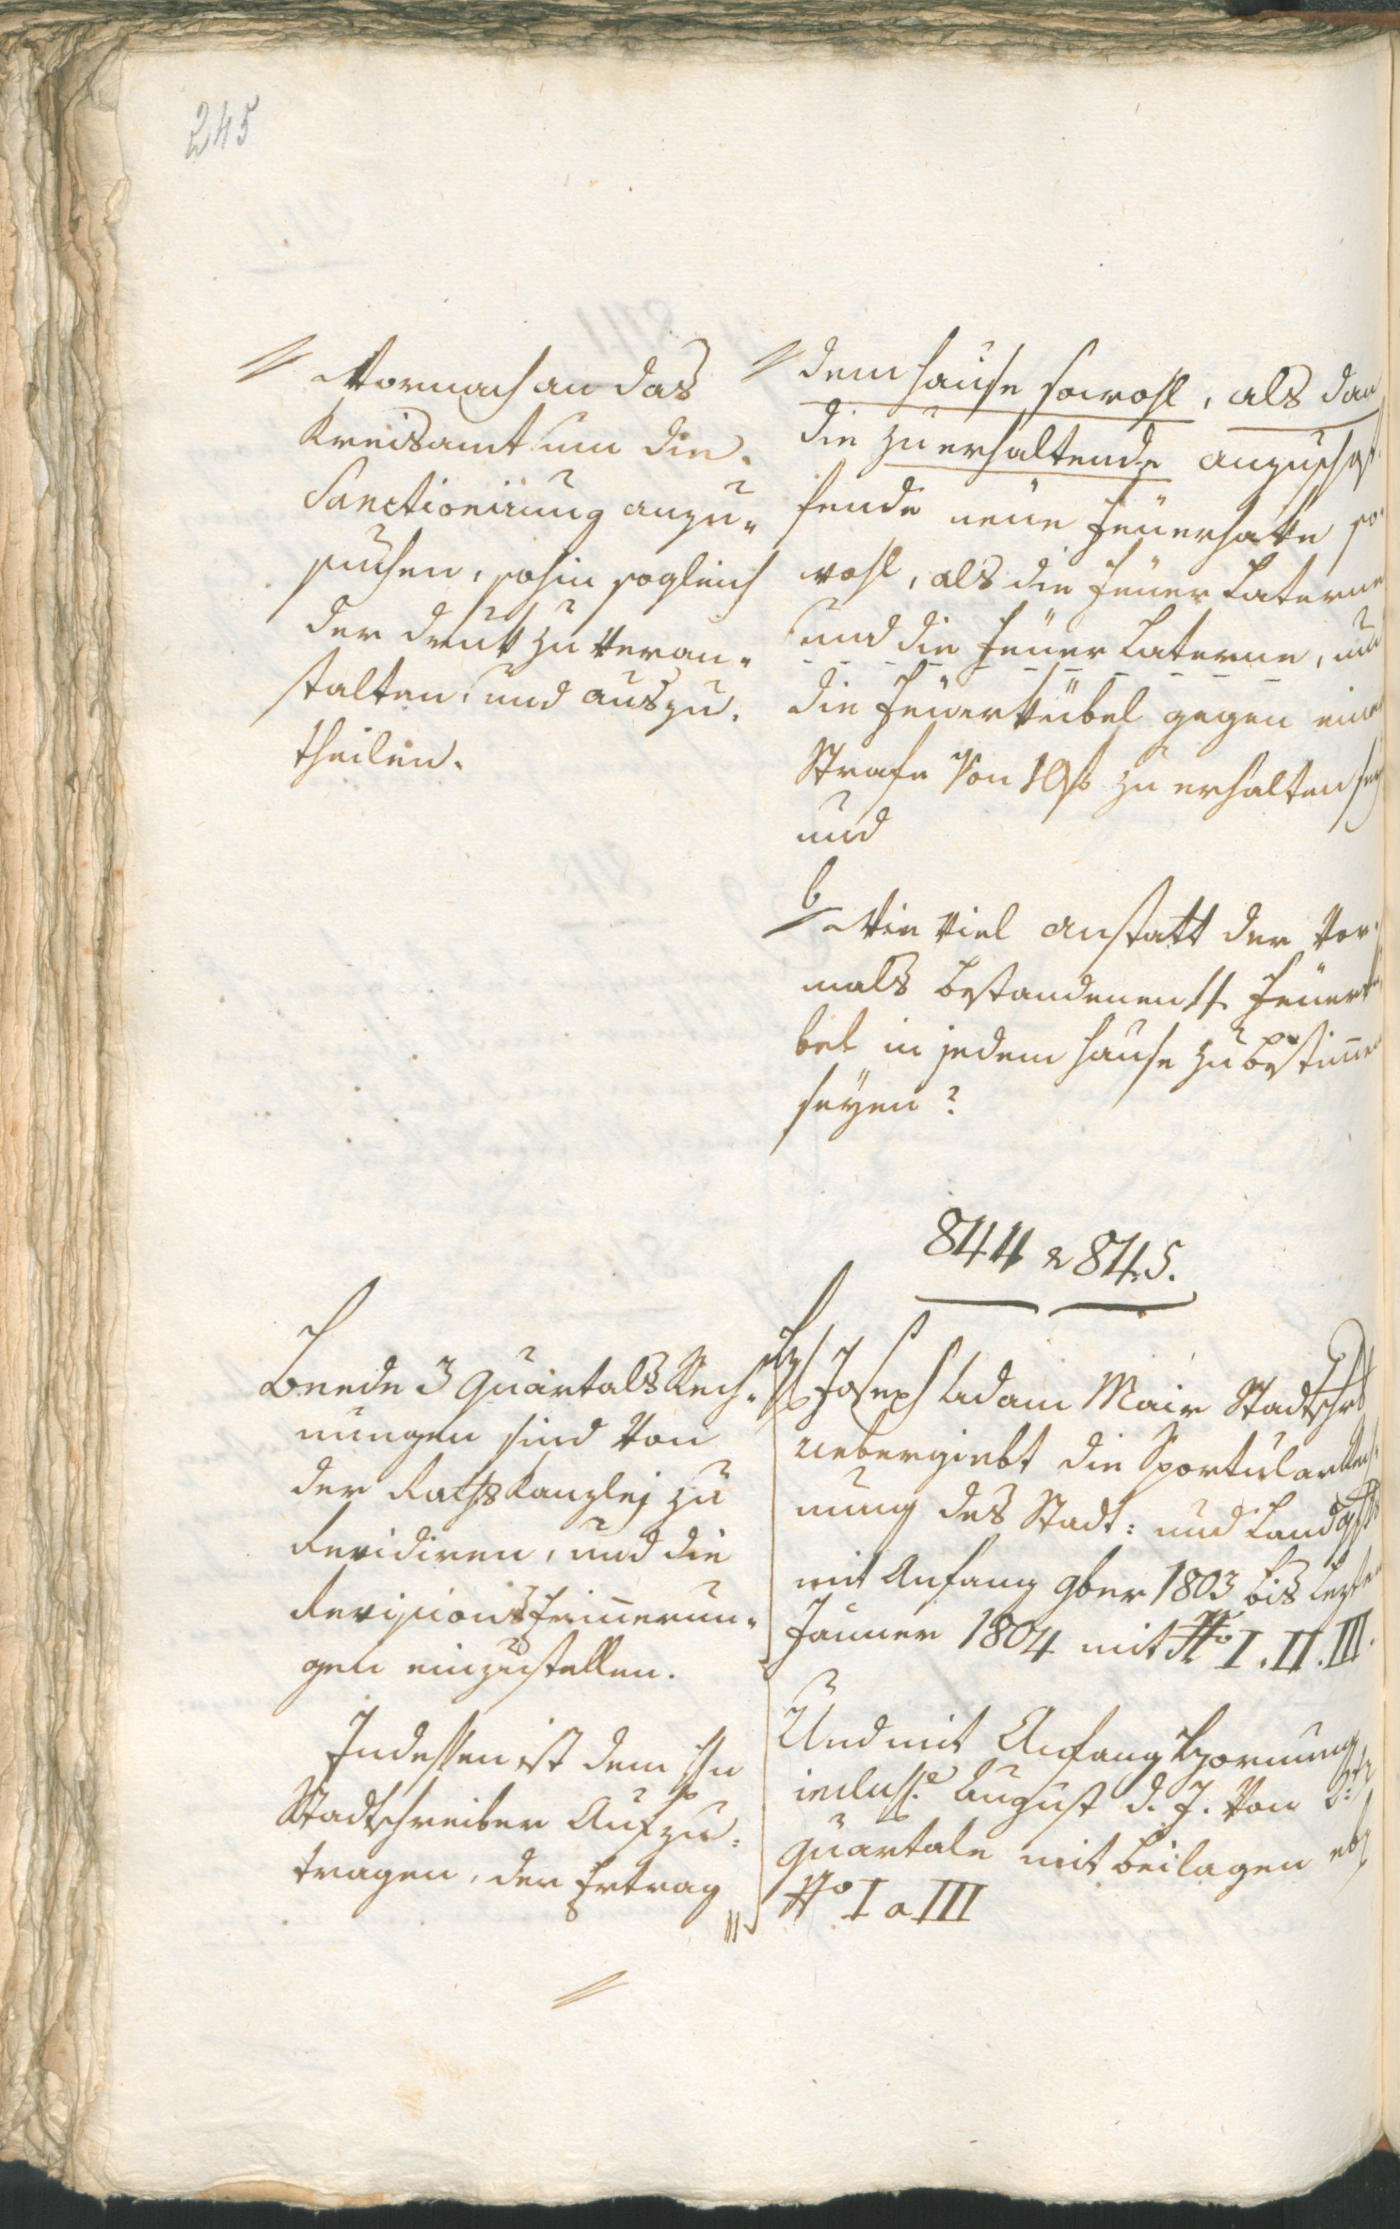 245
Wornach an das
Kreisamt um die
Sanctionirung anzu„
suchen, sohin sogleich
der Druk zu veran„
stalten, und auszu„
theilen.
dem Hause sowohl, als dan
die zu erhaltende anzuschaf„
fende neue Feuerhake so„
wohl, als die Feuer Laterne
und die Feuer Laterne, und
die Feuerkübel gegen einer
Strafe von 10 f zu erhalten sey
und
b
Wie viel anstatt der vor„
mals bestandenen Feuerkü
bel in jedem Hause zu bestimmen
seyen?
844 & 845.
Beede 3 Quartals Rech„
nungen sind von
der Raths Kanzlej zu
Revidiren, und die
Revisions Erinnerun„
gen einzustellen.
Indessen ist dem Hrn
Stadtschreiber Aufzu„
tragen, den Ertrag
Joseph Adam Mair Stadtschrb
uebergiebt die Sportular Rech„
nung des Stadt: und Landgchts
mit Anfang 9ber 1803 bis lezten
Jänner 1804 mit No I. II. III.
Und mit Anfang Hornung
incluss. August d. J. von 2
Quartale mit Beilagen
No I a III